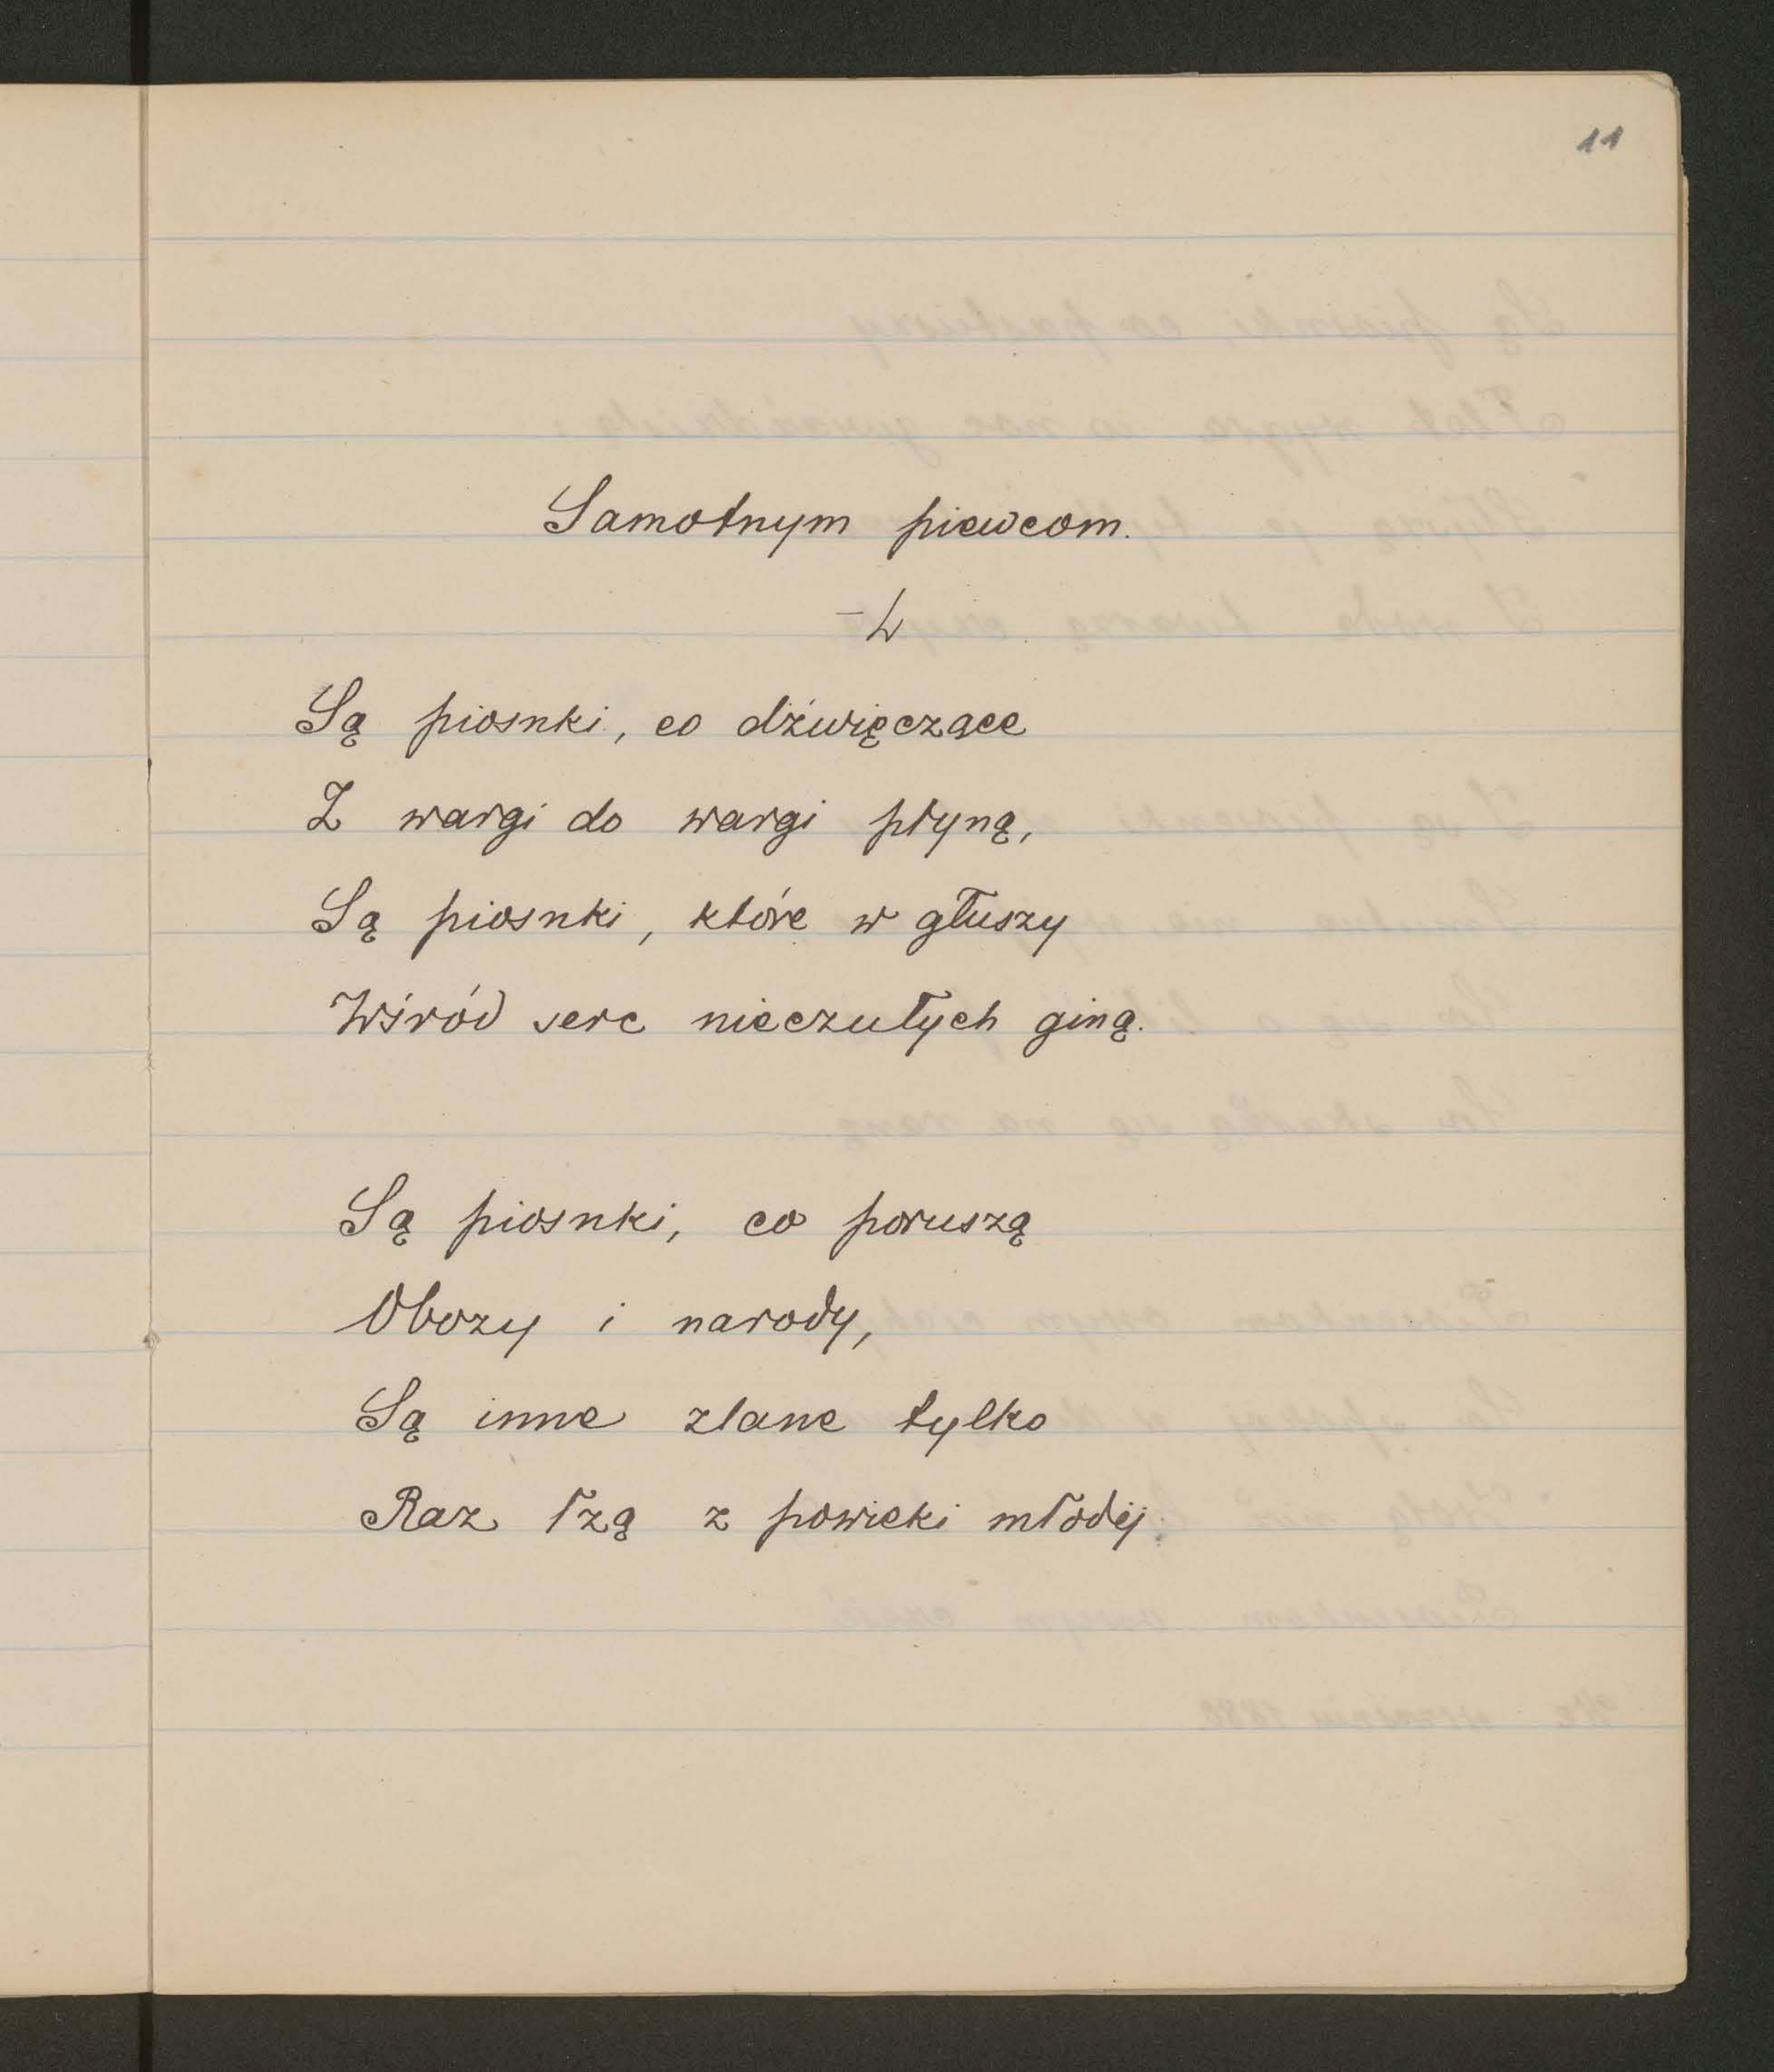 11
Samotnym piewcom.
Są piosnki, co dźwięczące
Z wargi do wargi płyną,
Są piosnki, które w głuszy
Wśród serc nieczułych giną.
Są piosnki, co poruszą
Obozy i narody,
Są inne zlane tylko
Raz łzą z powieki młodéj.